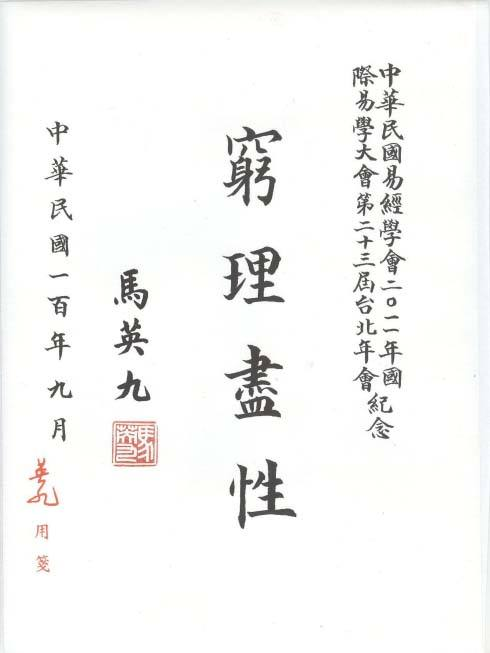 中華民國易經學會二〇一一年國
際易學大會第二十三屆台北年會紀念
窮理盡性
馬英九
馬英九
中華民國一百年九月
英九
用箋